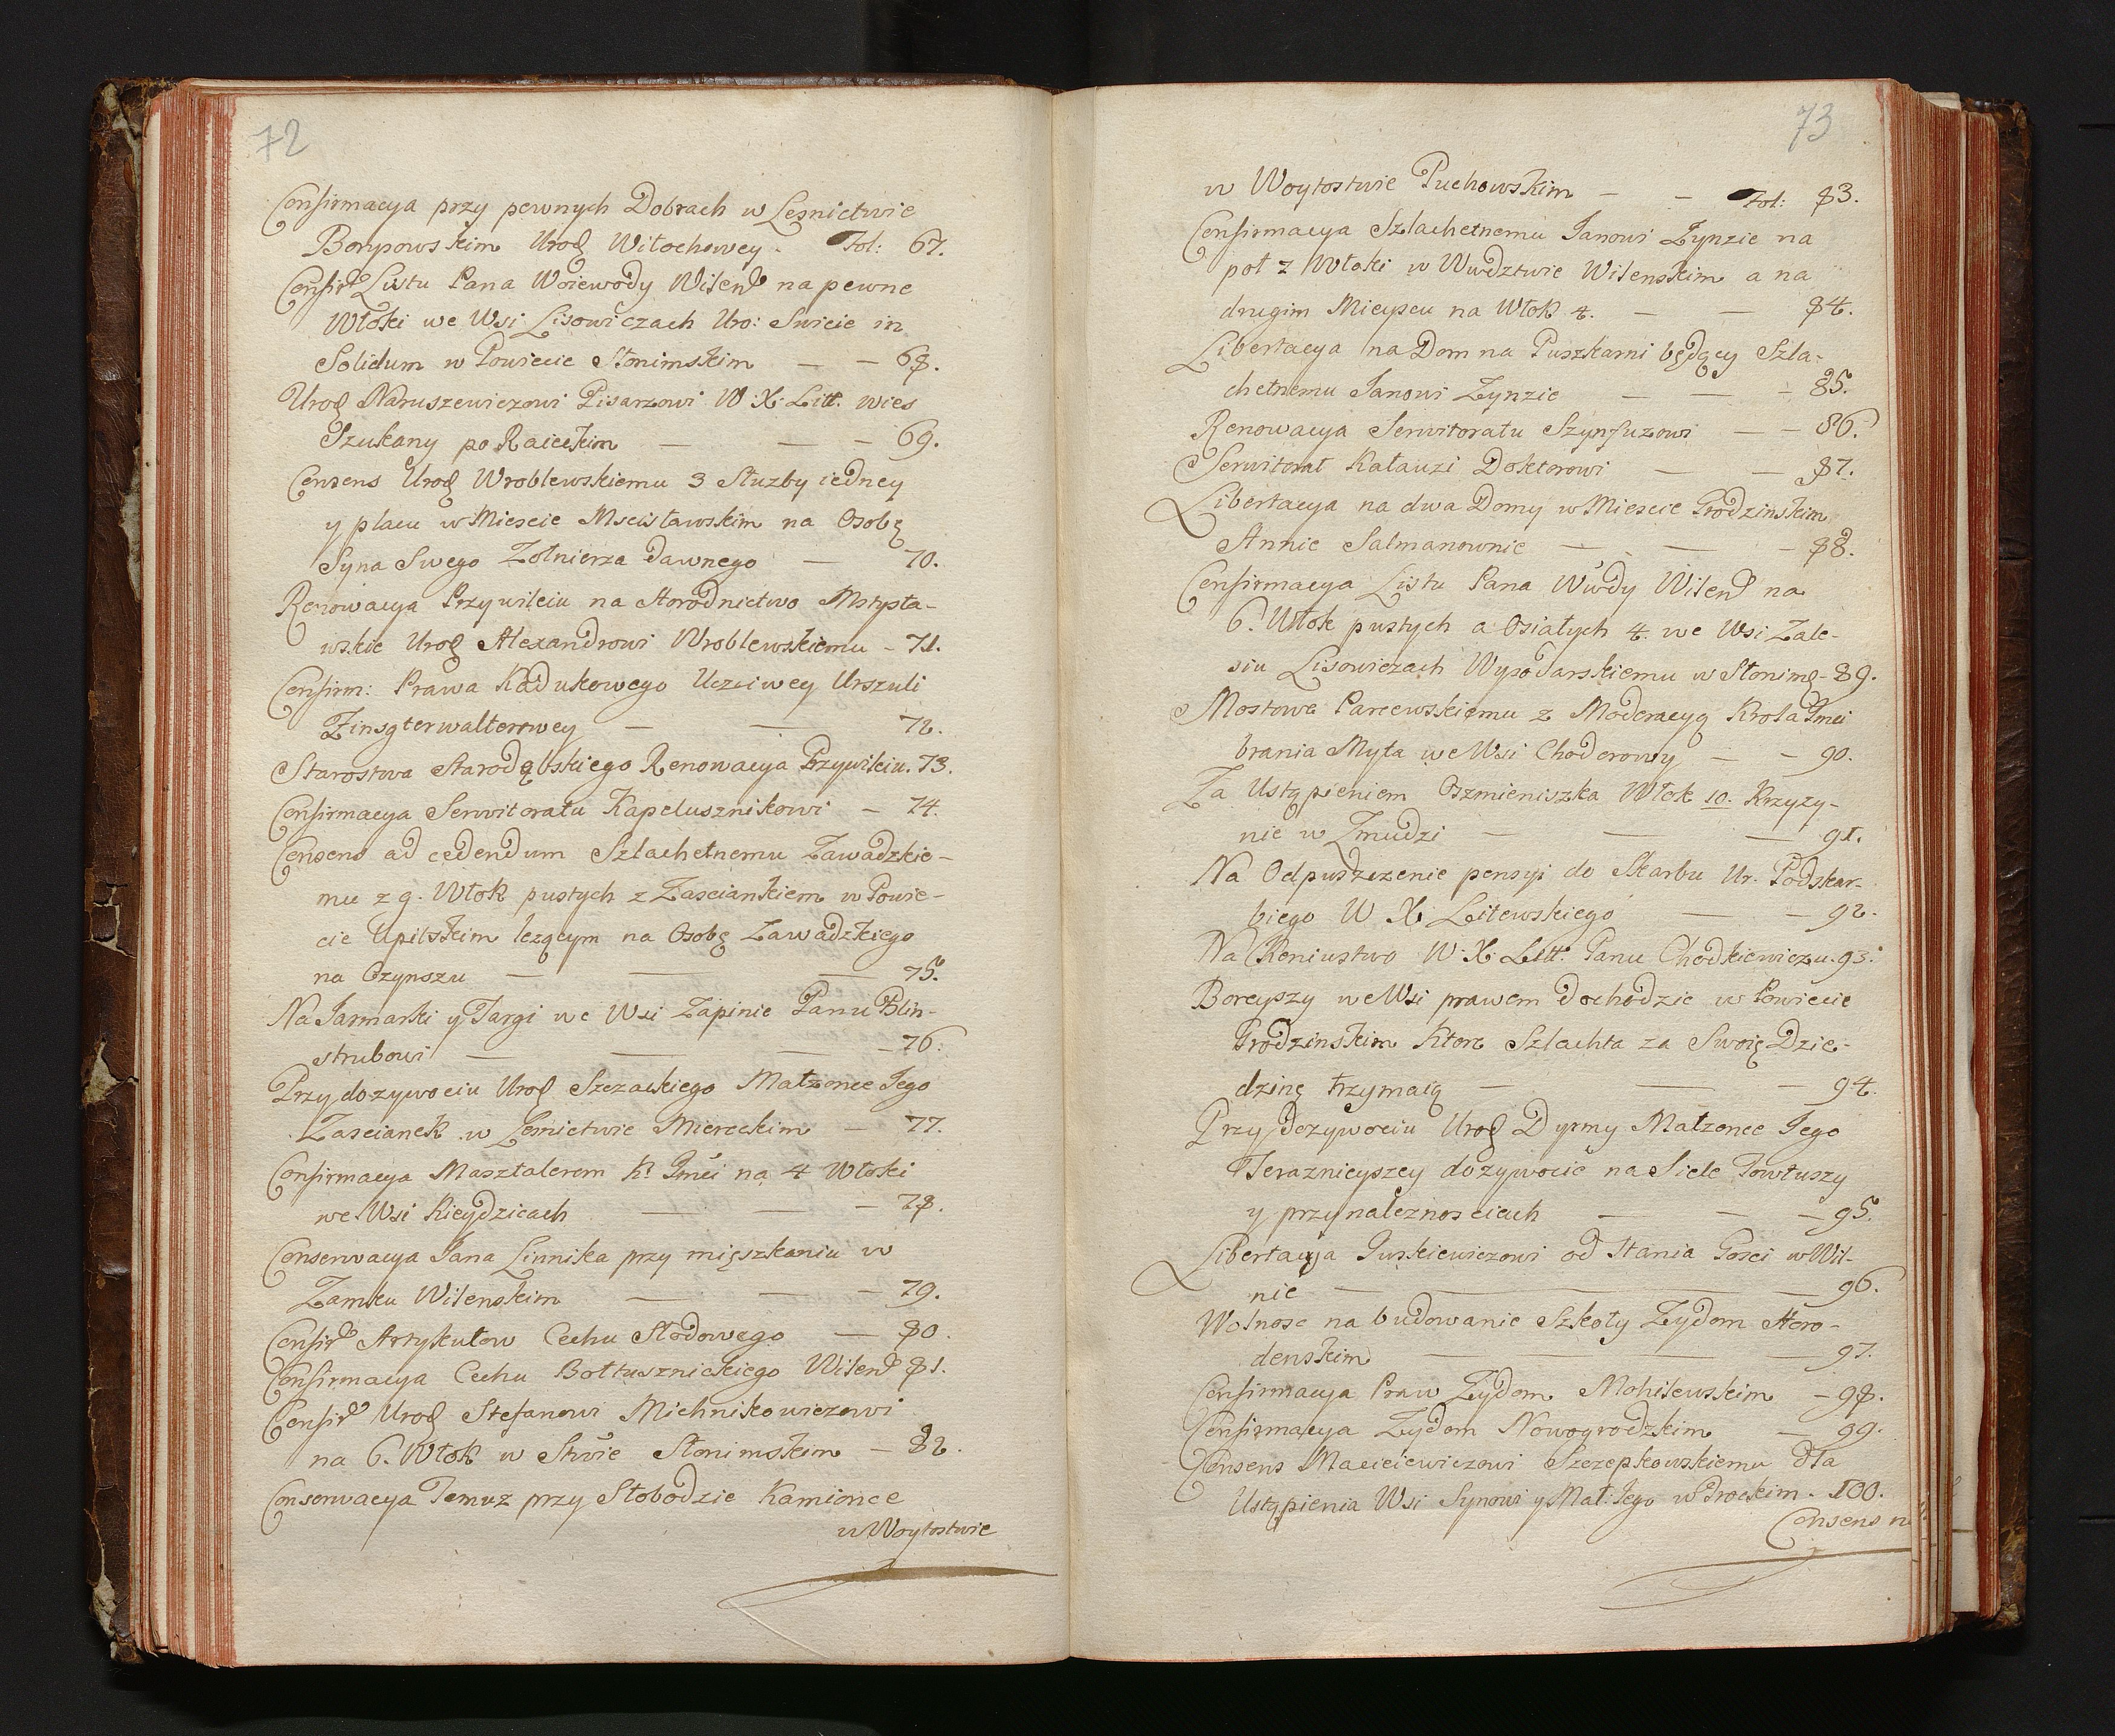 72
Confirmacya przy pewnych Dobrach w Lesnictwie
Borysowskim Urod Witochowey. Fol: 67.
Confir Listu Pana Woiewody Wilen na pewne
Włoki we Wsi Lisowiczach Uro: Swicie in
Solidum w Powiecie Słonimskim — — 68.
Urod Naruszewiczowi Pisarzowi W. X. Litt. wies
Szukany po Raieckim — — — 69.
Consens Urod Wroblewskiemu 3 Służby iedney
y placu w Miescie Mscisławskim na Osobę
Syna Swego Zołnierza dawnego — 70.
Renowacya Przywileiu na Horodnictwo Mstysła-
wskie Urod Alexandrowi Wroblewskiemu - 71.
Confirm: Prawa Kadukowego Uczciwey Urszuli
Zinsgterwalterowey — — 72.
Starostwa Starodąbskiego Renowacya Przywileiu. 73.
Confirmacya Serwitoratu Kapelusznikowi — 74.
Consens ad cedendum Szlachetnemu Zawadzkie-
mu z 9. Włok pustych z Zasciankiem w Powie-
cie Upitskim lezącym na Osobę Zawadzkiego
na Czynszu — — — 75.
Na Jarmarki y Targi we Wsi Zapinie Panu Blin-
strubowi — — — - 76.
Przy dozywociu Urod Szczackiego Małzonce Jego
Zascianek w Lesnictwie Miereckim — 77.
Confirmacya Masztalerom K. Jmci na 4 Włoki
we Wsi Rieydzicach — — - 78.
Conserwacya Jana Linnika przy mięszkaniu w
Zamku Wilenskim — — - 79.
Confir Artykułow Cechu Słodowego — 80.
Confirmacya Cechu Bołtusznickiego Wilen 81.
Confir Urod Stefanowi Michnikowiczowi
na 6. Włok w Stwie Słonimskim - 82.
Conserwacya Temuz przy Słobodzie Kamionce
w Woytostwie
73
w Woytostwie Puchowskim — - Fol: 83.
Confirmacya Szlachetnemu Janowi Zynzie na
poł z Włoki w Wwdztwie Wilenskim a na
drugim Mieyscu na Włok 4. — — 84.
Libertacya na Dom na Puszkarni będący Szla-
chetnemu Janowi Zynzie — — - 85.
Renowacya Serwitoratu Szynfuzowi — - 86.
Serwitorat Kałauzi Doktorowi — — 87.
Libertacya na dwa Domy w Miescie Grodzinskim
Annie Salmanownie — — - 88.
Confirmacya Listu Pana Wwdy Wilen na
6. Włok pustych a Osiałych 4. we Wsi Zale-
siu Lisowiczach Wysodarskiemu w Słonimę - 89.
Mostowe Parcewskiemu z Moderacyą Krola Jmci
brania Myta we Wsi Chodorowy — - 90.
Za Ustąpieniem Oszmieniszka Włok 10. Krzyzy-
nie w Zmudzi — — — 91.
Na Odpuszczenie pensyi do Skarbu Ur. Podskar-
biego W X. Litewskiego — - 92.
Na Koniustwo W. X. Litt. Panu Chodkiewiczu. 93.
Boreyszy we Wsi prawem dochodzie w Powiecie
Grodzinskim Ktore Szlachta za Swoię Dzie-
dzinę trzymaią — — - 94.
Przy dozywociu Urod Dyrmy Małzonce Jego
Teraznieyszey dozywocie na Siele Powłuszy
y przynaleznosciach — - - 95.
Libertacya Juszkiewiczowi od Stania Gosci w Wil-
nie — — — 96.
Wolnosc na budowanie Szkoły Zydom Horo-
denskim — — — 97.
Confirmacya Praw Zydom Mohilewskim - 98.
Confirmacya Zydom Nowogrodzkim — 99.
Consens Macieiewiczowi Szczepkowskiemu dla
Ustąpienia Wsi Synowi y Mał: Jego w Trockim. 100.
Consens n